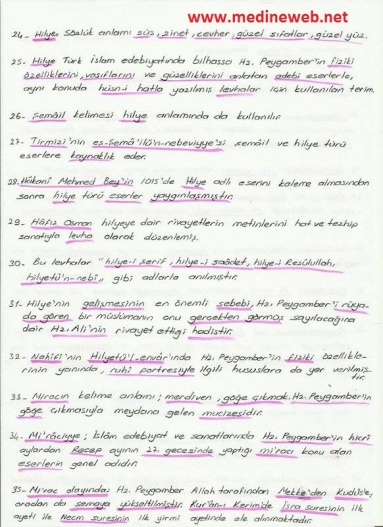 www.medineweb.net
24- Hilye; Sözlük anlamı süs, zinet, cevher, güzel sıfatlar, güzel yüz.
25- Hilye Türk islam edebiyatında bilhassa Hz. Peygamber'in fiziki
özelliklerini, vasıflarını ve güzelliklerini anlatan edebi eserlerle,
aynı konuda hüsn-i hatla yazılmış levhalar için kullanılan terim.
26- Şemâil kelimesi hilye anlamında da kullanılır
27- Tirmizi'nin eş-Şemâ'ilü'n-nebeviyye'si şemâil ve hilye türü
eserlere kaynaklık eder.
28. Hâkânî Mehmed Bey'in 1015'de Hilye adlı eserini kaleme almasından
sonra hilye türü eserler yaygınlaşmıştır.
29- Hâfız Osman hilyeye dair rivayetlerin metinlerini hat ve tezhip
sanatıyla levha olarak düzenlemiş.
30- Bu levhalar "hilye-i şerif, hilye-i saâdet, hilye-i Resûlullah,
hilyetü'n-nebî" gibi adlarla anılmıştır.
31- Hilye'nin gelişmesinin en önemli sebebi, Hz. Peygamber'i rüya-
da gören bir müslümanın onu gerçekten görmüş sayılacağına
dair Hz. Ali'nin rivayet ettiği hadistir.
32- Nahîfî'nin Hilyetü'l-envâr'ında Hz. Peygamber'in fiziki özellikle-
rinin yanında, ruhi portresiyle ilgili hususlara da yer verilmiş-
tir.
33- Miracın kelime anlamı; merdiven, göğe çıkmak. Hz. Peygamber'in
göğe çıkmasıyla meydana gelen mucizesidir.
34- Mi'râciyye; İslâm edebiyat ve sanatlarında Hz. Peygamber'in hicrî
aylardan Recep ayının 27. gecesinde yaptığı miracı konu alan
eserlerin genel adıdır.
35- Mi'rac olayında; Hz. Peygamber Allah tarafından Mekke'den Kudüs'e,
oradan da semaya yükseltilmiştir. Kur'ân-ı Kerim'de İsra suresinin ilk
ayeti ile Necm suresinin ilk yirmi ayetinde ele alınmaktadır.